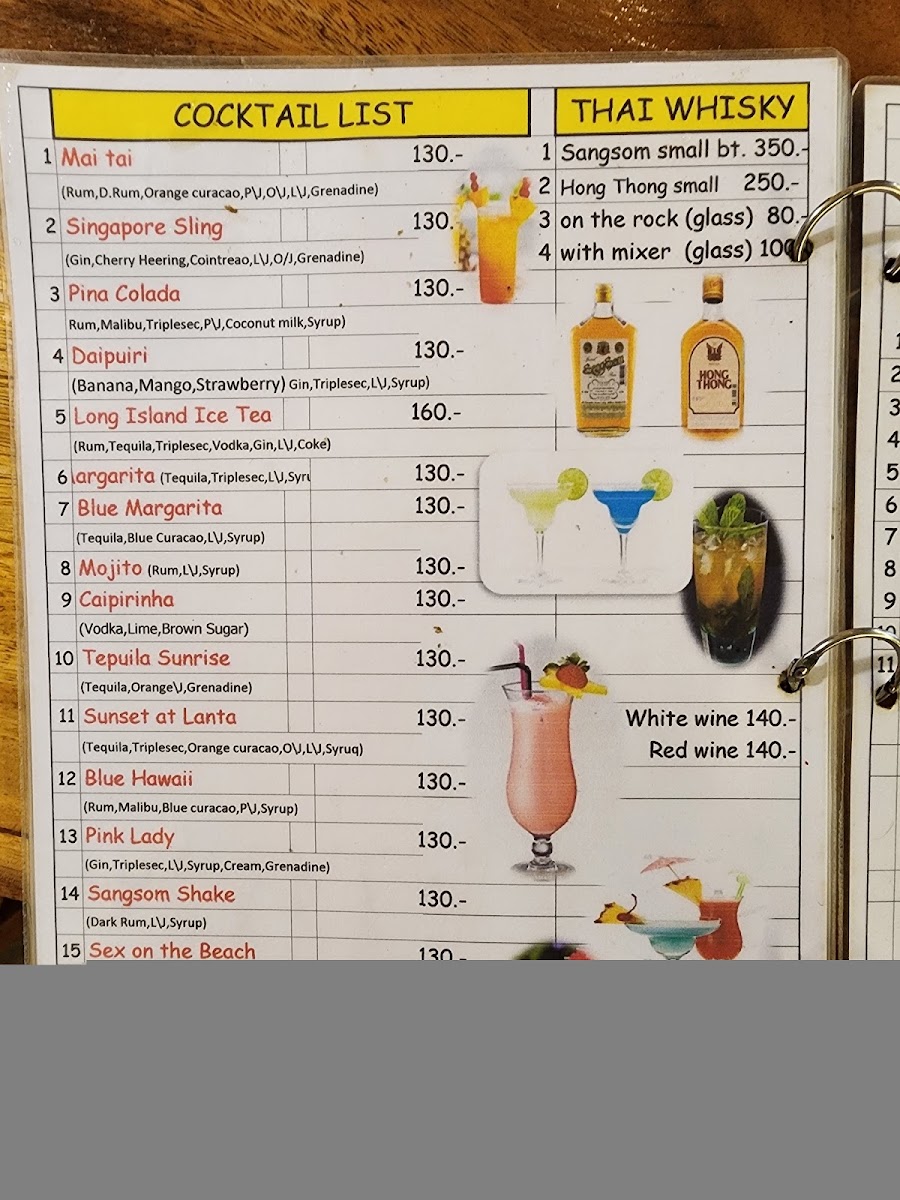 COCKTAIL LIST
1 Mai tai 130.-
(Rum,D.Rum,Orange curacao,P\J,O\J,L\J,Grenadine)
2 Singapore Sling 130.
(Gin,Cherry Heering,Cointreao,L\J,O/J,Grenadine)
3 Pina Colada 130.-
Rum,Malibu,Triplesec,P\J,Coconut milk,Syrup)
4 Daipuiri 130.-
(Banana,Mango,Strawberry) Gin,Triplesec,L\J,Syrup)
5 Long Island Ice Tea 160.-
(Rum,Tequila,Triplesec,Vodka,Gin,L\J,Coke)
6 argarita (Tequila,Triplesec,L\J,Syru 130.-
7 Blue Margarita 130.-
(Tequila,Blue Curacao,L\J,Syrup)
8 Mojito (Rum,L\J,Syrup) 130.-
9 Caipirinha 130.-
(Vodka,Lime,Brown Sugar)
10 Tepuila Sunrise 130.-
(Tequila,Orange\J,Grenadine)
11 Sunset at Lanta 130.-
(Tequila,Triplesec,Orange curacao,O\J,L\J,Syruq)
12 Blue Hawaii 130.-
(Rum,Malibu,Blue curacao,P\J,Syrup)
13 Pink Lady 130.-
(Gin,Triplesec,L\J,Syrup,Cream,Grenadine)
14 Sangsom Shake 130.-
(Dark Rum,L\J,Syrup)
15 Sex on the Beach 130.-
THAI WHISKY
1 Sangsom small bt. 350.-
2 Hong Thong small 250.-
3 on the rock (glass) 80.-
4 with mixer (glass) 100
HONG
THONG
White wine 140.-
Red wine 140.-
1
2
3
4
5
6
7
8
9
10
11